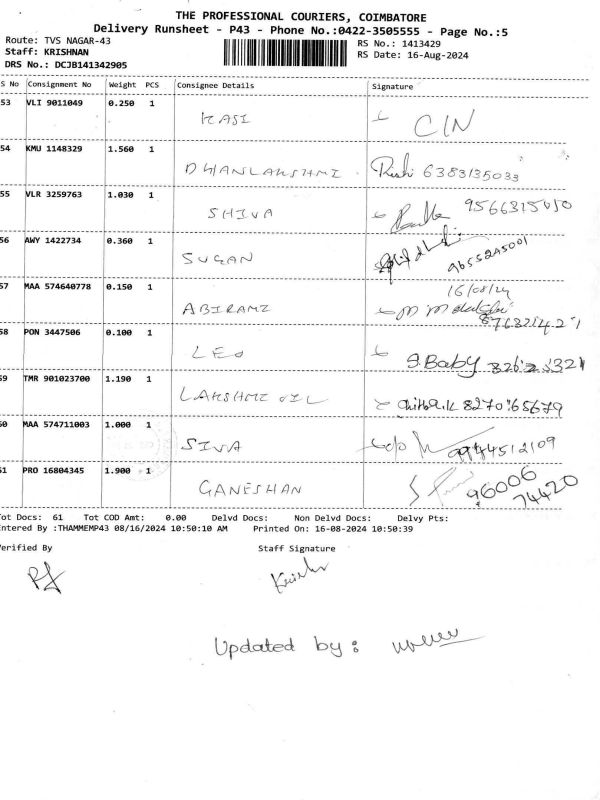 THE PROFESSIONAL COURIERS, COIMBATORE
Delivery Runsheet - P43 - Phone No.:0422-3505555 - Page No.:5
Route: TVS NAGAR-43
RS No.: 1413429
Staff: KRISHNAN
RS Date: 16-Aug-2024
DRS No.: DCJB141342905
S No Consignment No Weight PCS Consignee Details Signature
53 VLI 9011049 0.250 1
KASI CIN
54 KMU 1148329 1.560 1
DHANLAKSHMI 6383135033
55 VLR 3259763 1.030 1
SHIVA
56 AWY 1422734 0.360 1
SUGAN 9655245001
57 MAA 574640778 0.150 1
16/08/24
ABIRAMI
58 PON 3447506 0.100 1
LEO S.Baby
59 TMR 901023700 1.190 1
LAKSHMI OIL
60 MAA 574711003 1.000 1
SIVA 9944512109
61 PRO 16804345 1.900 1
GANESHAN 96006
74420
Tot Docs: 61 Tot COD Amt: 0.00 Delvd Docs: Non Delvd Docs: Delvy Pts:
Entered By :THAMMEMP43 08/16/2024 10:50:10 AM Printed On: 16-08-2024 10:50:39
Verified By Staff Signature
Updated by: